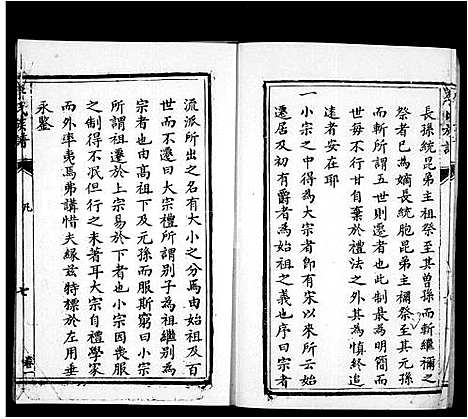 長孫統昆弟主祖祭至其曾孫而斬繼禰之
祭者已為嫡長統胞昆弟主禰祭至其元孫
而斬所謂五世則遷者也此制最為簡而易
世每不行甘自棄於禮法之外其慎終追
遠者安在耶
一小宗之稱為大宗者即有宋以來所云始
遷居有爵者為始祖之義也序曰宗者
流派所出之名有大小之分焉由始祖及百
世而不遷曰大宗禮所謂別子為祖繼別為
宗者也由高祖下及元孫而服斯窮曰小宗
所謂祖遷於上宗易於下者也小宗因喪服
之制得不泯但行之未著耳大宗自禮學家
而外率夷為弗講惜夫緣兹特標於首用垂
永鑒
氏族譜
凡
七